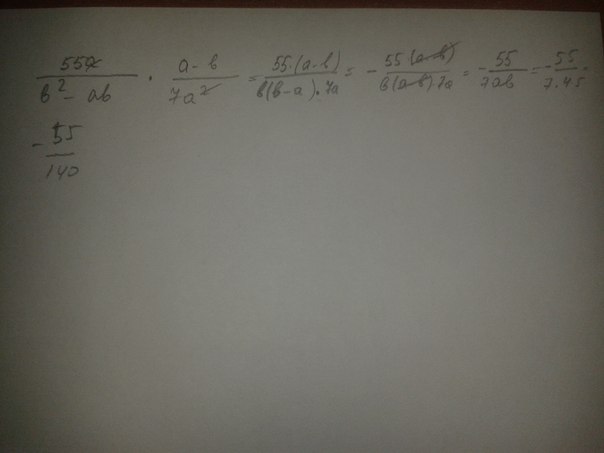 55a/(b² - ab) · (a - b)/(7a²) = 55·(a-b)/(b(b-a)·7a) = - 55(a-b)/(b(a-b)7a) = - 55/(7ab) = - 55/(7·4·5) =
- 55/140